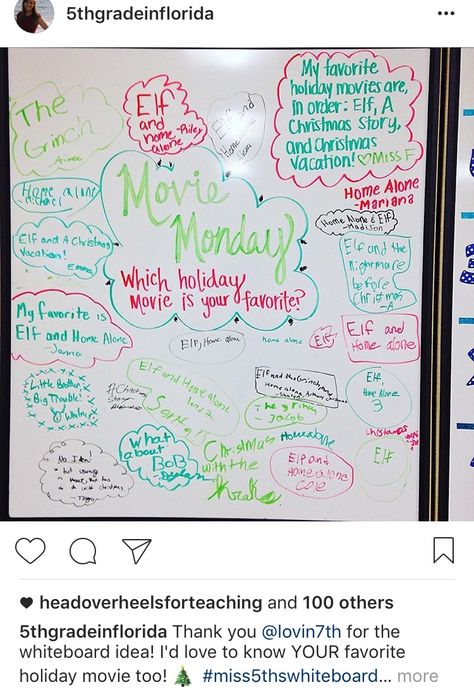 5thgradeinflorida
The
Grinch
Aimee
Elf
and
home
alone
-Riley
Elf and
My favorite
holiday movies are,
in order: Elf, A
Christmas Story,
and Christmas
Vacation! ♡Miss F
Home Alone
-Mariana
Home alone
Home Alone & Elf
-Madison
Movie
Monday
Which holiday
Movie is your favorite?
Elf and A Christmas
Vacation!
Emma
Elf and the
Nightmare
before
Christmas
-A
My favorite is
Elf and Home Alone
Elf, Home alone
home alone
Elf
Elf and
Home alone
Little Brother,
Big Trouble!
Elf and Home Alone
Elf and the Grinch
Home alone
Elf,
Home alone
3
What
about
BoB
Christmas
with the
Kranks
Home alone
Elf and
Home alone
Cole
Elf
No Idea!
headoverheelsforteaching and 100 others
5thgradeinflorida Thank you @lovin7th for the
whiteboard idea! I'd love to know YOUR favorite
holiday movie too! 🎄 #miss5thswhiteboard... more